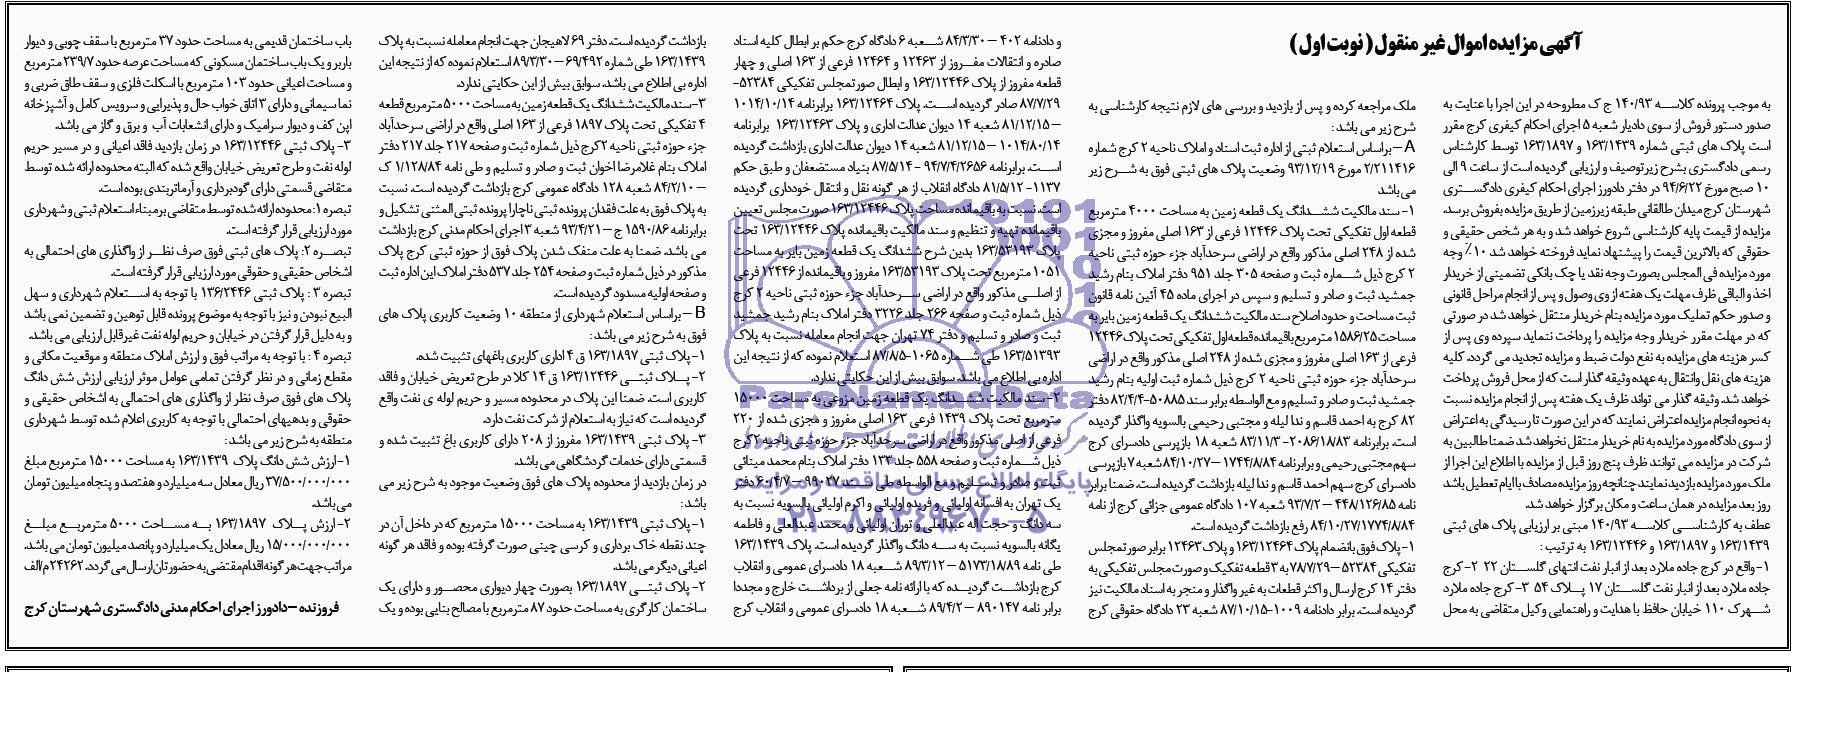 آگهی مزایده اموال غیر منقول (نوبت اول)
به موجب پرونده کلاسه ۱۴۰/۹۳ ج ک مطروحه در این اجرا با عنایت به
صدور دستور فروش از سوی دادیار شعبه ۵ اجرای احکام کیفری کرج مقرر
است پلاک های ثبتی شماره ۱۶۳/۱۴۳۹ و ۱۶۳/۱۸۹۷ توسط کارشناس
رسمی دادگستری بشرح زیر توصیف و ارزیابی گردیده است از ساعت ۹ الی
۱۰ صبح مورخ ۹۴/۶/۲۲ در دفتر دادورز اجرای احکام کیفری دادگستری
شهرستان کرج میدان طالقانی طبقه زیرزمین از طریق مزایده بفروش برسد.
مزایده از قیمت پایه کارشناسی شروع خواهد شد و به هر شخص حقیقی و
حقوقی که بالاترین قیمت را پیشنهاد نماید فروخته خواهد شد ۱۰٪ وجه
مورد مزایده فی المجلس بصورت وجه نقد یا چک بانکی تضمینی از خریدار
اخذ و الباقی ظرف مهلت یک هفته از وی وصول و پس از انجام مراحل قانونی
و صدور حکم تملیک مورد مزایده بنام خریدار منتقل خواهد شد در صورتی
که در مهلت مقرر خریدار وجه مزایده را پرداخت ننماید سپرده وی پس از
کسر هزینه های مزایده به نفع دولت ضبط و مزایده تجدید می گردد. کلیه
هزینه های نقل وانتقال به عهده وثیقه گذار است که از محل فروش پرداخت
خواهد شد. وثیقه گذار می تواند ظرف یک هفته پس از انجام مزایده نسبت
به نحوه انجام مزایده اعتراض نمایند که در این صورت تا رسیدگی به اعتراض
از سوی دادگاه مورد مزایده به نام خریدار منتقل نخواهد شد ضمنا طالبین به
شرکت در مزایده می توانند ظرف پنج روز قبل از مزایده با اطلاع این اجرا از
ملک مورد مزایده بازدید نمایند چنانچه روز مزایده مصادف با ایام تعطیل باشد
روز بعد مزایده در همان ساعت و مکان برگزار خواهد شد.
عطف به کارشناسی کلاسه ۱۴۰/۹۳ مبنی بر ارزیابی پلاک های ثبتی
۱۶۳/۱۴۳۹ و ۱۶۳/۱۸۹۷ و ۱۶۳/۱۲۴۴۶ به ترتیب :
۱-واقع در کرج جاده ملارد بعد از انبار نفت انتهای گلستان ۲۲ ۲-کرج
جاده ملارد بعد از انبار نفت گلستان ۱۷ پلاک ۵۴ ۳-کرج جاده ملارد
شهرک ۱۱۰ خیابان حافظ با هدایت و راهنمایی وکیل متقاضی به محل
ملک مراجعه کرده و پس از بازدید و بررسی های لازم نتیجه کارشناسی به
شرح زیر می باشد:
A –براساس استعلام ثبتی از اداره ثبت اسناد و املاک ناحیه ۲ کرج شماره
۲/۲۱۱۴۱۶ مورخ ۹۳/۱۲/۱۹ وضعیت پلاک های ثبتی فوق به شرح زیر
می باشد
۱- سند مالکیت ششدانگ یک قطعه زمین به مساحت ۴۰۰۰ مترمربع
قطعه اول تفکیکی تحت پلاک ۱۲۴۴۶ فرعی از ۱۶۳ اصلی مفروز و مجزی
شده از ۲۴۸ اصلی مذکور واقع در اراضی سرحدآباد جزء حوزه ثبتی ناحیه
۲ کرج ذیل شماره ثبت و صفحه ۳۰۵ جلد ۹۵۱ دفتر املاک بنام رشید
جمشید ثبت و صادر و تسلیم و سپس در اجرای ماده ۴۵ آئین نامه قانون
ثبت مساحت و حدود اصلاح سند مالکیت ششدانگ یک قطعه زمین بایر به
مساحت ۱۵۸۶/۲۵ مترمربع باقیمانده قطعه اول تفکیکی تحت پلاک ۱۲۴۴۶
فرعی از ۱۶۳ اصلی مفروز و مجزی شده از ۲۴۸ اصلی مذکور واقع در اراضی
سرحدآباد جزء حوزه ثبتی ناحیه ۲ کرج ذیل شماره ثبت اولیه بنام رشید
جمشید ثبت و صادر و تسلیم و مع الواسطه برابر سند ۵۰۸۸۵-۸۲/۴/۴ دفتر
۸۲ کرج به احمد قاسم و ندا لیله و مجتبی رحیمی بالسویه واگذار گردیده
است. برابرنامه ۲۰۸۶/۱۸/۸۳- ۸۳/۱۱/۳ شعبه ۱۸ بازپرسی دادسرای کرج
سهم مجتبی رحیمی و برابرنامه ۱۷۴۴/۸/۸۴ –۸۴/۱۰/۲۷ شعبه ۷ بازپرسی
دادسرای کرج سهم احمد قاسم و ندا لیله بازداشت گردیده است. ضمنا برابر
نامه ۴۴۸/۱۲۶/۸۵ – ۹۳/۷/۲ شعبه ۱۰۷ دادگاه عمومی جزائی کرج از نامه
۸۴/۱۰/۲۷/۱۷۷۴/۸/۸۴ رفع بازداشت گردیده است.
۱-پلاک فوق بانضمام پلاک ۱۶۳/۱۲۴۶۴ و پلاک ۱۲۴۶۳ برابر صورتمجلس
تفکیکی ۵۲۳۸۴ –۷۸/۷/۲۹ به ۳ قطعه تفکیک و صورت مجلس تفکیکی به
دفتر ۱۴ کرج ارسال و اکثر قطعات به غیر واگذار و منجر به اسناد مالکیت نیز
گردیده است. برابر دادنامه ۱۰۰۹-۸۷/۱۰/۱۵ شعبه ۲۳ دادگاه حقوقی کرج
و دادنامه ۴۰۲ – ۸۴/۳/۳۰ شعبه ۶ دادگاه کرج حکم بر ابطال کلیه اسناد
صادره و انتقالات مفروز از ۱۲۴۶۳ و ۱۲۴۶۴ فرعی از ۱۶۳ اصلی و چهار
قطعه مفروز از پلاک ۱۶۳/۱۲۴۴۶ و ابطال صورتمجلس تفکیکی ۵۲۳۸۴-
۸۷/۷/۲۹ صادر گردیده است. پلاک ۱۶۳/۱۲۴۶۴ برابرنامه ۱۰۱۴/۱۰/۱۴
–۸۱/۱۲/۱۵ شعبه ۱۴ دیوان عدالت اداری و پلاک ۱۶۳/۱۲۴۶۳ برابرنامه
۱۰۱۴/۸۰/۱۴ – ۸۱/۱۲/۱۵ شعبه ۱۴ دیوان عدالت اداری بازداشت گردیده
است. برابرنامه ۹۴/۷/۴/۲۶۵۶ - ۸۷/۵/۱۴ بنیاد مستضعفان و طبق حکم
۱۱۳۷-۸۱/۵/۱۲ دادگاه انقلاب از هر گونه نقل و انتقال خودداری گردیده
است. نسبت به باقیمانده مساحت پلاک ۱۶۳/۱۲۴۴۶ صورت مجلس تعیین
باقیمانده تهیه و تنظیم و سند مالکیت باقیمانده پلاک ۱۶۳/۱۲۴۴۶ تحت
پلاک ۱۶۳/۵۳۱۹۳ بدین شرح ششدانگ یک قطعه زمین بایر به مساحت
۱۰۵۱ مترمربع تحت پلاک ۱۶۳/۵۳۱۹۳ مفروز و باقیمانده از ۱۲۴۴۶ فرعی
از اصلی مذکور واقع در اراضی سرحدآباد جزء حوزه ثبتی ناحیه ۲ کرج
ذیل شماره ثبت و صفحه ۲۶۶ جلد ۳۲۲۶ دفتر املاک بنام رشید جمشید
ثبت و صادر و تسلیم و دفتر ۷۴ تهران جهت انجام معامله نسبت به پلاک
۱۶۳/۵۱۳۹۳ طی شماره ۱۰۶۵-۸۷/۸/۵ استعلام نموده که از نتیجه این
اداره بی اطلاع می باشد. سوابق بیش از این حکایتی ندارد.
۲- سند مالکیت ششدانگ یک قطعه زمین مزروعی به مساحت ۱۵۰۰۰
مترمربع تحت پلاک ۱۴۳۹ فرعی ۱۶۳ اصلی مفروز و مجزی شده از ۲۲۰
فرعی از اصلی مذکور واقع در اراضی سرحدآباد جزء حوزه ثبتی ناحیه ۲ کرج
ذیل شماره ثبت و صفحه ۵۵۸ جلد ۱۳۳ دفتر املاک بنام محمد مینائی
ثبت و صادر و تسلیم و مع الواسطه طی سند ۹۹۰۲۷–۶۰/۴/۷ دفتر
یک تهران به افسانه اولیائی و فریده اولیائی و اکرم اولیائی بالسویه نسبت به
سه دانگ و حجت اله عبدالعلی و توران اولیائی و محمد عبدالعلی و فاطمه
یگانه بالسویه نسبت به سه دانگ واگذار گردیده است. پلاک ۱۶۳/۱۴۳۹
طی نامه ۵۱۷۳/۱۸/۸۹ –۸۹/۳/۱۲ شعبه ۱۸ دادسرای عمومی و انقلاب
کرج بازداشت گردیده که با ارائه نامه جعلی از برداشت خارج و مجددا
برابر نامه ۸۹۰۱۴۷ –۸۹/۴/۲ شعبه ۱۸ دادسرای عمومی و انقلاب کرج
بازداشت گردیده است. دفتر ۶۹ لاهیجان جهت انجام معامله نسبت به پلاک
۱۶۳/۱۴۳۹ طی شماره ۶۹/۴۹۲ –۸۹/۳/۳۰ استعلام نموده که از نتیجه این
اداره بی اطلاع می باشد. سوابق بیش از این حکایتی ندارد.
۳-سند مالکیت ششدانگ یک قطعه زمین به مساحت ۵۰۰۰ مترمربع قطعه
۴ تفکیکی تحت پلاک ۱۸۹۷ فرعی از ۱۶۳ اصلی واقع در اراضی سرحدآباد
جزء حوزه ثبتی ناحیه ۲ کرج ذیل شماره ثبت و صفحه ۲۱۷ جلد ۲۱۷ دفتر
املاک بنام غلامرضا اخوان ثبت و صادر و تسلیم و طی نامه ۱/۱۲۸/۸۴ ک
–۸۴/۲/۱۰ شعبه ۱۲۸ دادگاه عمومی کرج بازداشت گردیده است. نسبت
به پلاک فوق به علت فقدان پرونده ثبتی ناچارا پرونده ثبتی المثنی تشکیل و
برابرنامه ۱۵۹۰/۸۶ ج–۹۳/۴/۲۱ شعبه ۳ اجرای احکام مدنی کرج بازداشت
می باشد. ضمنا به علت منفک شدن پلاک فوق از حوزه ثبتی کرج پلاک
مذکور در ذیل شماره ثبت و صفحه ۲۵۴ جلد ۵۳۷ دفتر املاک این اداره ثبت
و صفحه اولیه مسدود گردیده است.
B –براساس استعلام شهرداری از منطقه ۱۰ وضعیت کاربری پلاک های
فوق به شرح زیر می باشد:
۱-پلاک ثبتی ۱۶۳/۱۸۹۷ ق ۴ اداری کاربری باغهای تثبیت شده.
۲- پلاک ثبتی ۱۶۳/۱۲۴۴۶ ق ۱۴ کلا در طرح تعریض خیابان و فاقد
کاربری است. ضمنا این پلاک در محدوده مسیر و حریم لوله ی نفت واقع
گردیده است که نیاز به استعلام از شرکت نفت دارد.
۳- پلاک ثبتی ۱۶۳/۱۴۳۹ مفروز از ۲۰۸ دارای کاربری باغ تثبیت شده و
قسمتی دارای خدمات گردشگاهی می باشد.
در زمان بازدید از محدوده پلاک های فوق وضعیت موجود به شرح زیر می
باشد:
۱-پلاک ثبتی ۱۶۳/۱۴۳۹ به مساحت ۱۵۰۰۰ مترمربع که در داخل آن در
چند نقطه خاک برداری و کرسی چینی صورت گرفته بوده و فاقد هر گونه
اعیانی دیگر می باشد.
۲- پلاک ثبتی ۱۶۳/۱۸۹۷ بصورت چهار دیواری محصور و دارای یک
ساختمان کارگری به مساحت حدود ۸۷ مترمربع با مصالح بنایی بوده و یک
باب ساختمان قدیمی به مساحت حدود ۳۷ مترمربع با سقف چوبی و دیوار
باربر و یک باب ساختمان مسکونی که مساحت عرصه حدود ۲۳۹/۷ مترمربع
و مساحت اعیانی حدود ۱۰۳ مترمربع با اسکلت فلزی و سقف طاق ضربی و
نما سیمانی و دارای ۳ اتاق خواب حال و پذیرایی و سرویس کامل و آشپزخانه
اپن کف و دیوار سرامیک و دارای انشعابات آب و برق و گاز می باشد.
۳- پلاک ثبتی ۱۶۳/۱۲۴۴۶ در زمان بازدید فاقد اعیانی و در مسیر حریم
لوله نفت و طرح تعریض خیابان واقع شده که البته محدوده ارائه شده توسط
متقاضی قسمتی دارای گودبرداری و آرماتربندی بوده است.
تبصره ۱: محدوده ارائه شده توسط متقاضی بر مبناء استعلام ثبتی و شهرداری
مورد ارزیابی قرار گرفته است.
تبصره ۲: پلاک های ثبتی فوق صرف نظر از واگذاری های احتمالی به
اشخاص حقیقی و حقوقی مورد ارزیابی قرار گرفته است.
تبصره ۳ : پلاک ثبتی ۱۳۶/۲۴۴۶ با توجه به استعلام شهرداری و سهل
البیع نبودن و نیز با توجه به موضوع پرونده قابل توهین و تضمین نمی باشد
و به دلیل قرار گرفتن در خیابان و حریم لوله نفت غیر قابل ارزیابی می باشد.
تبصره ۴ : با توجه به مراتب فوق و ارزش املاک منطقه و موقعیت مکانی و
مقطع زمانی و در نظر گرفتن تمامی عوامل موثر ارزیابی ارزش شش دانگ
پلاک های فوق صرف نظر از واگذاری های احتمالی به اشخاص حقیقی و
حقوقی و بدهیهای احتمالی با توجه به کاربری اعلام شده توسط شهرداری
منطقه به شرح زیر می باشد:
۱-ارزش شش دانگ پلاک ۱۶۳/۱۴۳۹ به مساحت ۱۵۰۰۰ مترمربع مبلغ
۳۷/۵۰۰/۰۰۰/۰۰۰ ریال معادل سه میلیارد و هفتصد و پنجاه میلیون تومان
می باشد.
۲- ارزش پلاک ۱۶۳/۱۸۹۷ به مساحت ۵۰۰۰ مترمربع مبلغ
۱۵/۰۰۰/۰۰۰/۰۰۰ ریال معادل یک میلیارد و پانصد میلیون تومان می باشد.
مراتب جهت هر گونه اقدام مقتضی به حضورتان ارسال می گردد. ۲۴۲۶۲م/الف
فروزنده –دادورز اجرای احکام مدنی دادگستری شهرستان کرج
ParsNamadData
پایگاه اطلاع رسانی مناقصه و مزایده
۰۲۱-۸۸۳۴۹۶۷۰-۵